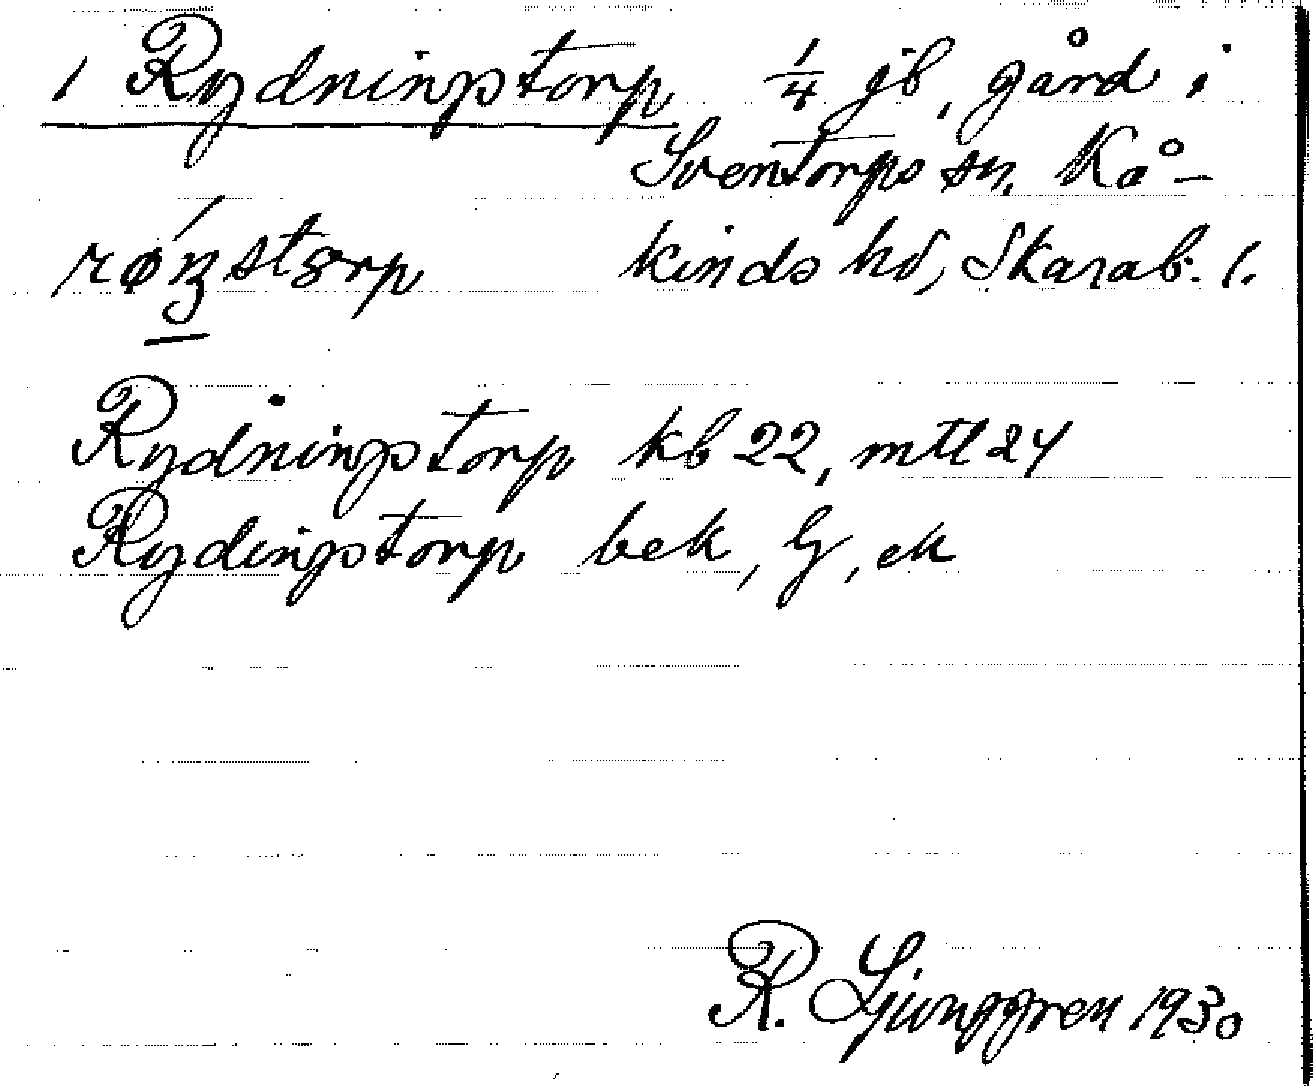 1 Rydningstorp 1/4 jb, gård i
Sventorps sn. Kå-
kinds hd, Skarab. l.
Rydningstorp kb 22, mtl 24
Rydingstorp bek, G, ek
R. Ljunggren 1930